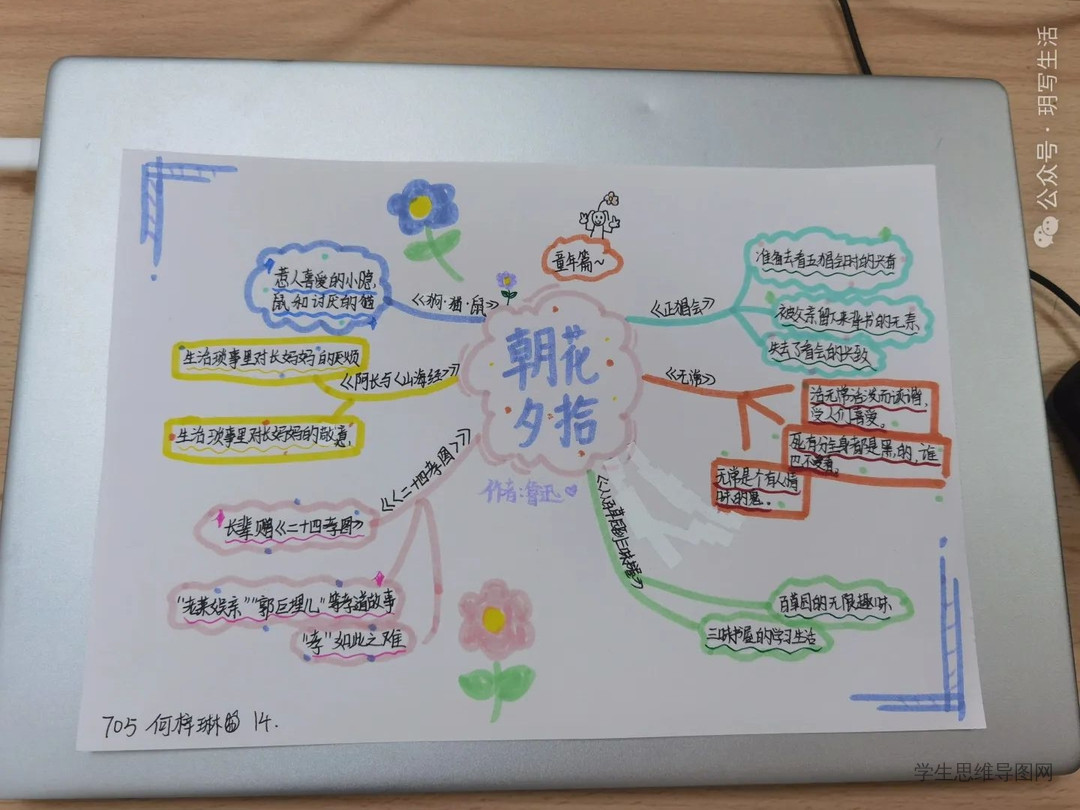 童年篇~
朝花
夕拾
作者:鲁迅
《狗·猫·鼠》
惹人喜爱的小隐
鼠和讨厌的猫
《阿长与《山海经》
生活琐事里对长妈妈的厌烦
生活琐事里对长妈妈的敬意
《《二十四孝图》》
长辈赠《二十四孝图》
"老莱娱亲""郭巨埋儿"等孝道故事
"孝"如此之难
《五猖会》
准备去看五猖会时的兴奋
被父亲留下来背书的无奈
失去了看会的兴致
《无常》
活无常活泼而诙谐,
受人们喜爱。
死有分全身都是黑的,谁
也不爱看。
无常是个有人情
味的鬼。
《从百草园到三味书屋》
百草园的无限趣味
三味书屋的学习生活
705 何梓琳 14.
公众号·玥写生活
学生思维导图网